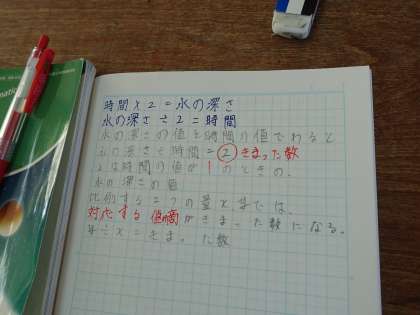 時間×2=水の深さ
水の深さ÷2=時間
水の深さの値を時間の値でわると
水の深さ÷時間=2 きまった数
2は時間の値が1のときの、
水の深さの値
比例する2つの量xとyでは、
対応する値の商がきまった数になる。
y÷x=きまった数